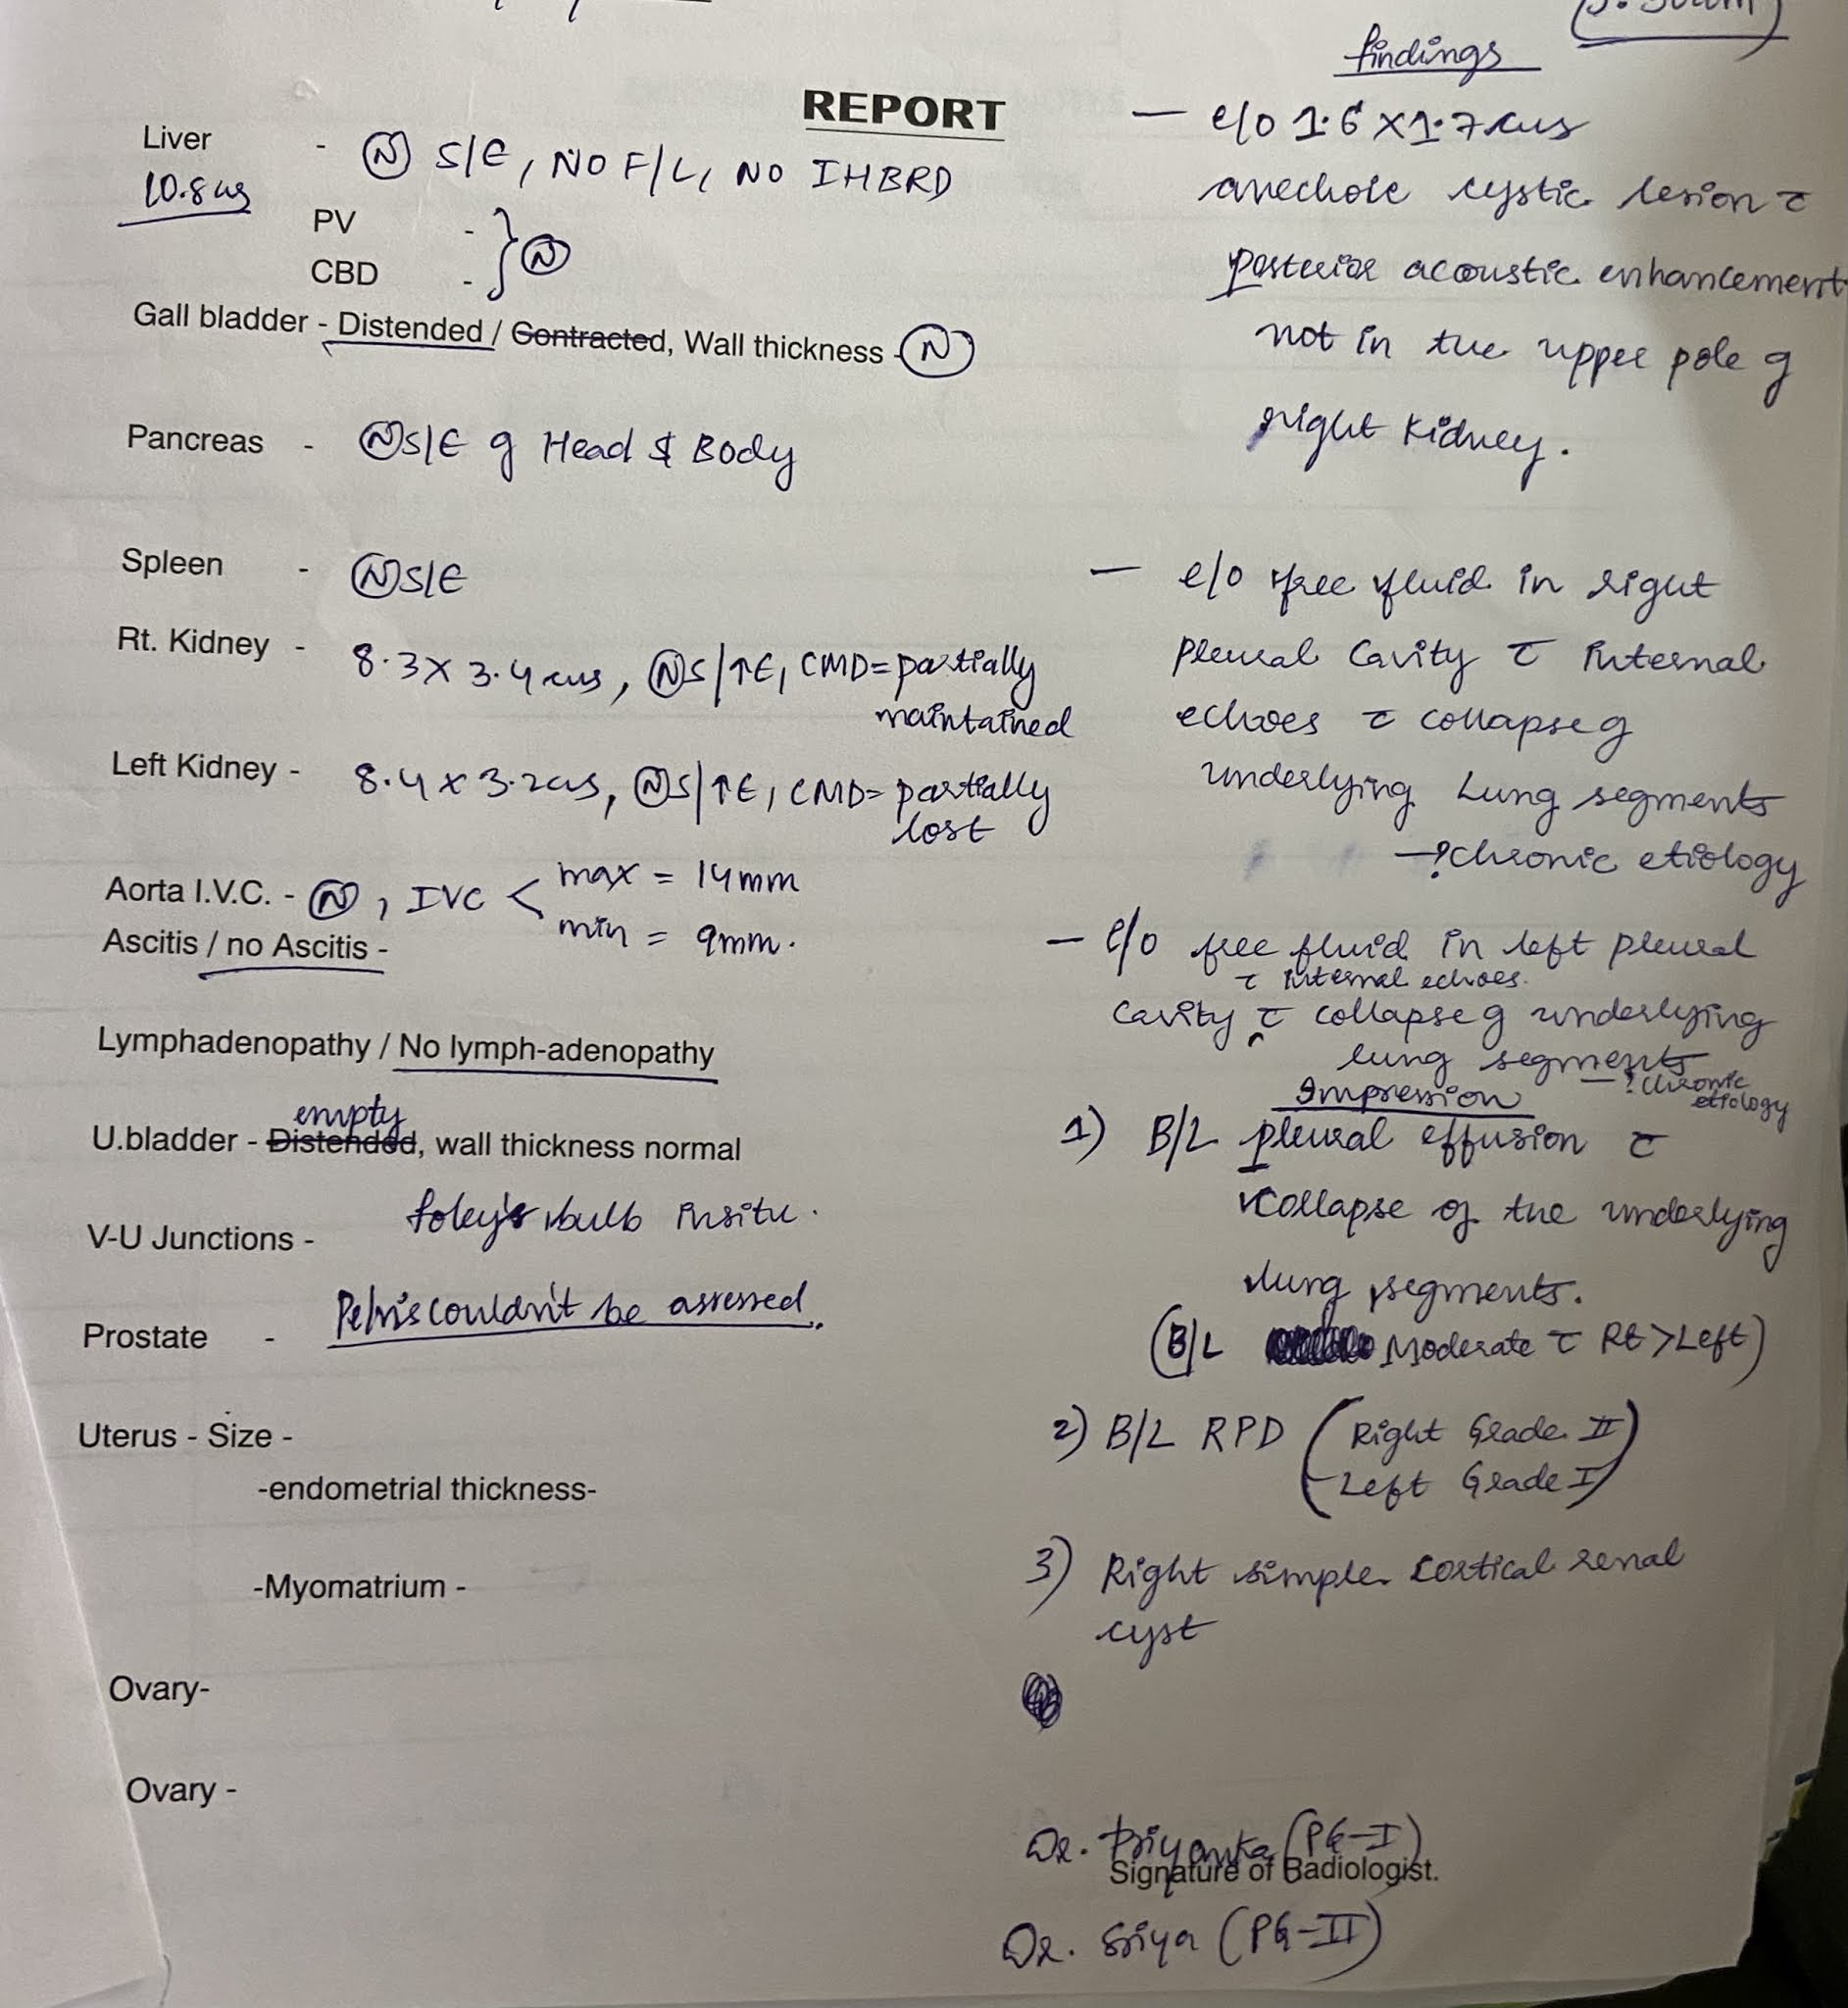 REPORT
Liver - Ⓝ S/E, NO F/L, NO IHBRD
10.8cms
PV -
CBD - } Ⓝ
Gall bladder - Distended / Contracted, Wall thickness - Ⓝ
Pancreas - Ⓝ S/E of Head & Body
Spleen - Ⓝ S/E
Rt. Kidney - 8.3 x 3.4 cms, Ⓝ S/↑E, CMD = partially
maintained
Left Kidney - 8.4 x 3.2cms, Ⓝ S/↑E, CMD = partially
lost
Aorta I.V.C. - Ⓝ, IVC < max = 14mm
min = 9mm.
Ascitis / no Ascitis -
Lymphadenopathy / No lymph-adenopathy
empty
U.bladder - Distended, wall thickness normal
foley's bulb insitu.
V-U Junctions -
Pelvis couldn't be assessed.
Prostate -
Uterus - Size -
-endometrial thickness-
-Myomatrium -
Ovary-
Ovary -
findings
— e/o 1.6 x 1.7 cms
anechoic cystic lesion c̄
posterior acoustic enhancement
not in the upper pole of
right kidney.
— e/o free fluid in right
pleural cavity c̄ internal
echoes c̄ collapse of
underlying Lung segments
—?chronic etiology
— e/o free fluid in left pleural
c̄ internal echoes.
cavity c̄ collapse of underlying
lung segments
—?chronic
etiology
Impression
1) B/L pleural effusion c̄
collapse of the underlying
lung segments.
(B/L Moderate c̄ Rt > Left)
2) B/L RPD (Right Grade II
Left Grade I)
3) Right simple cortical renal
cyst
Dr. Priyanka (PG-I)
Signature of Radiologist.
Dr. Sriya (PG-II)